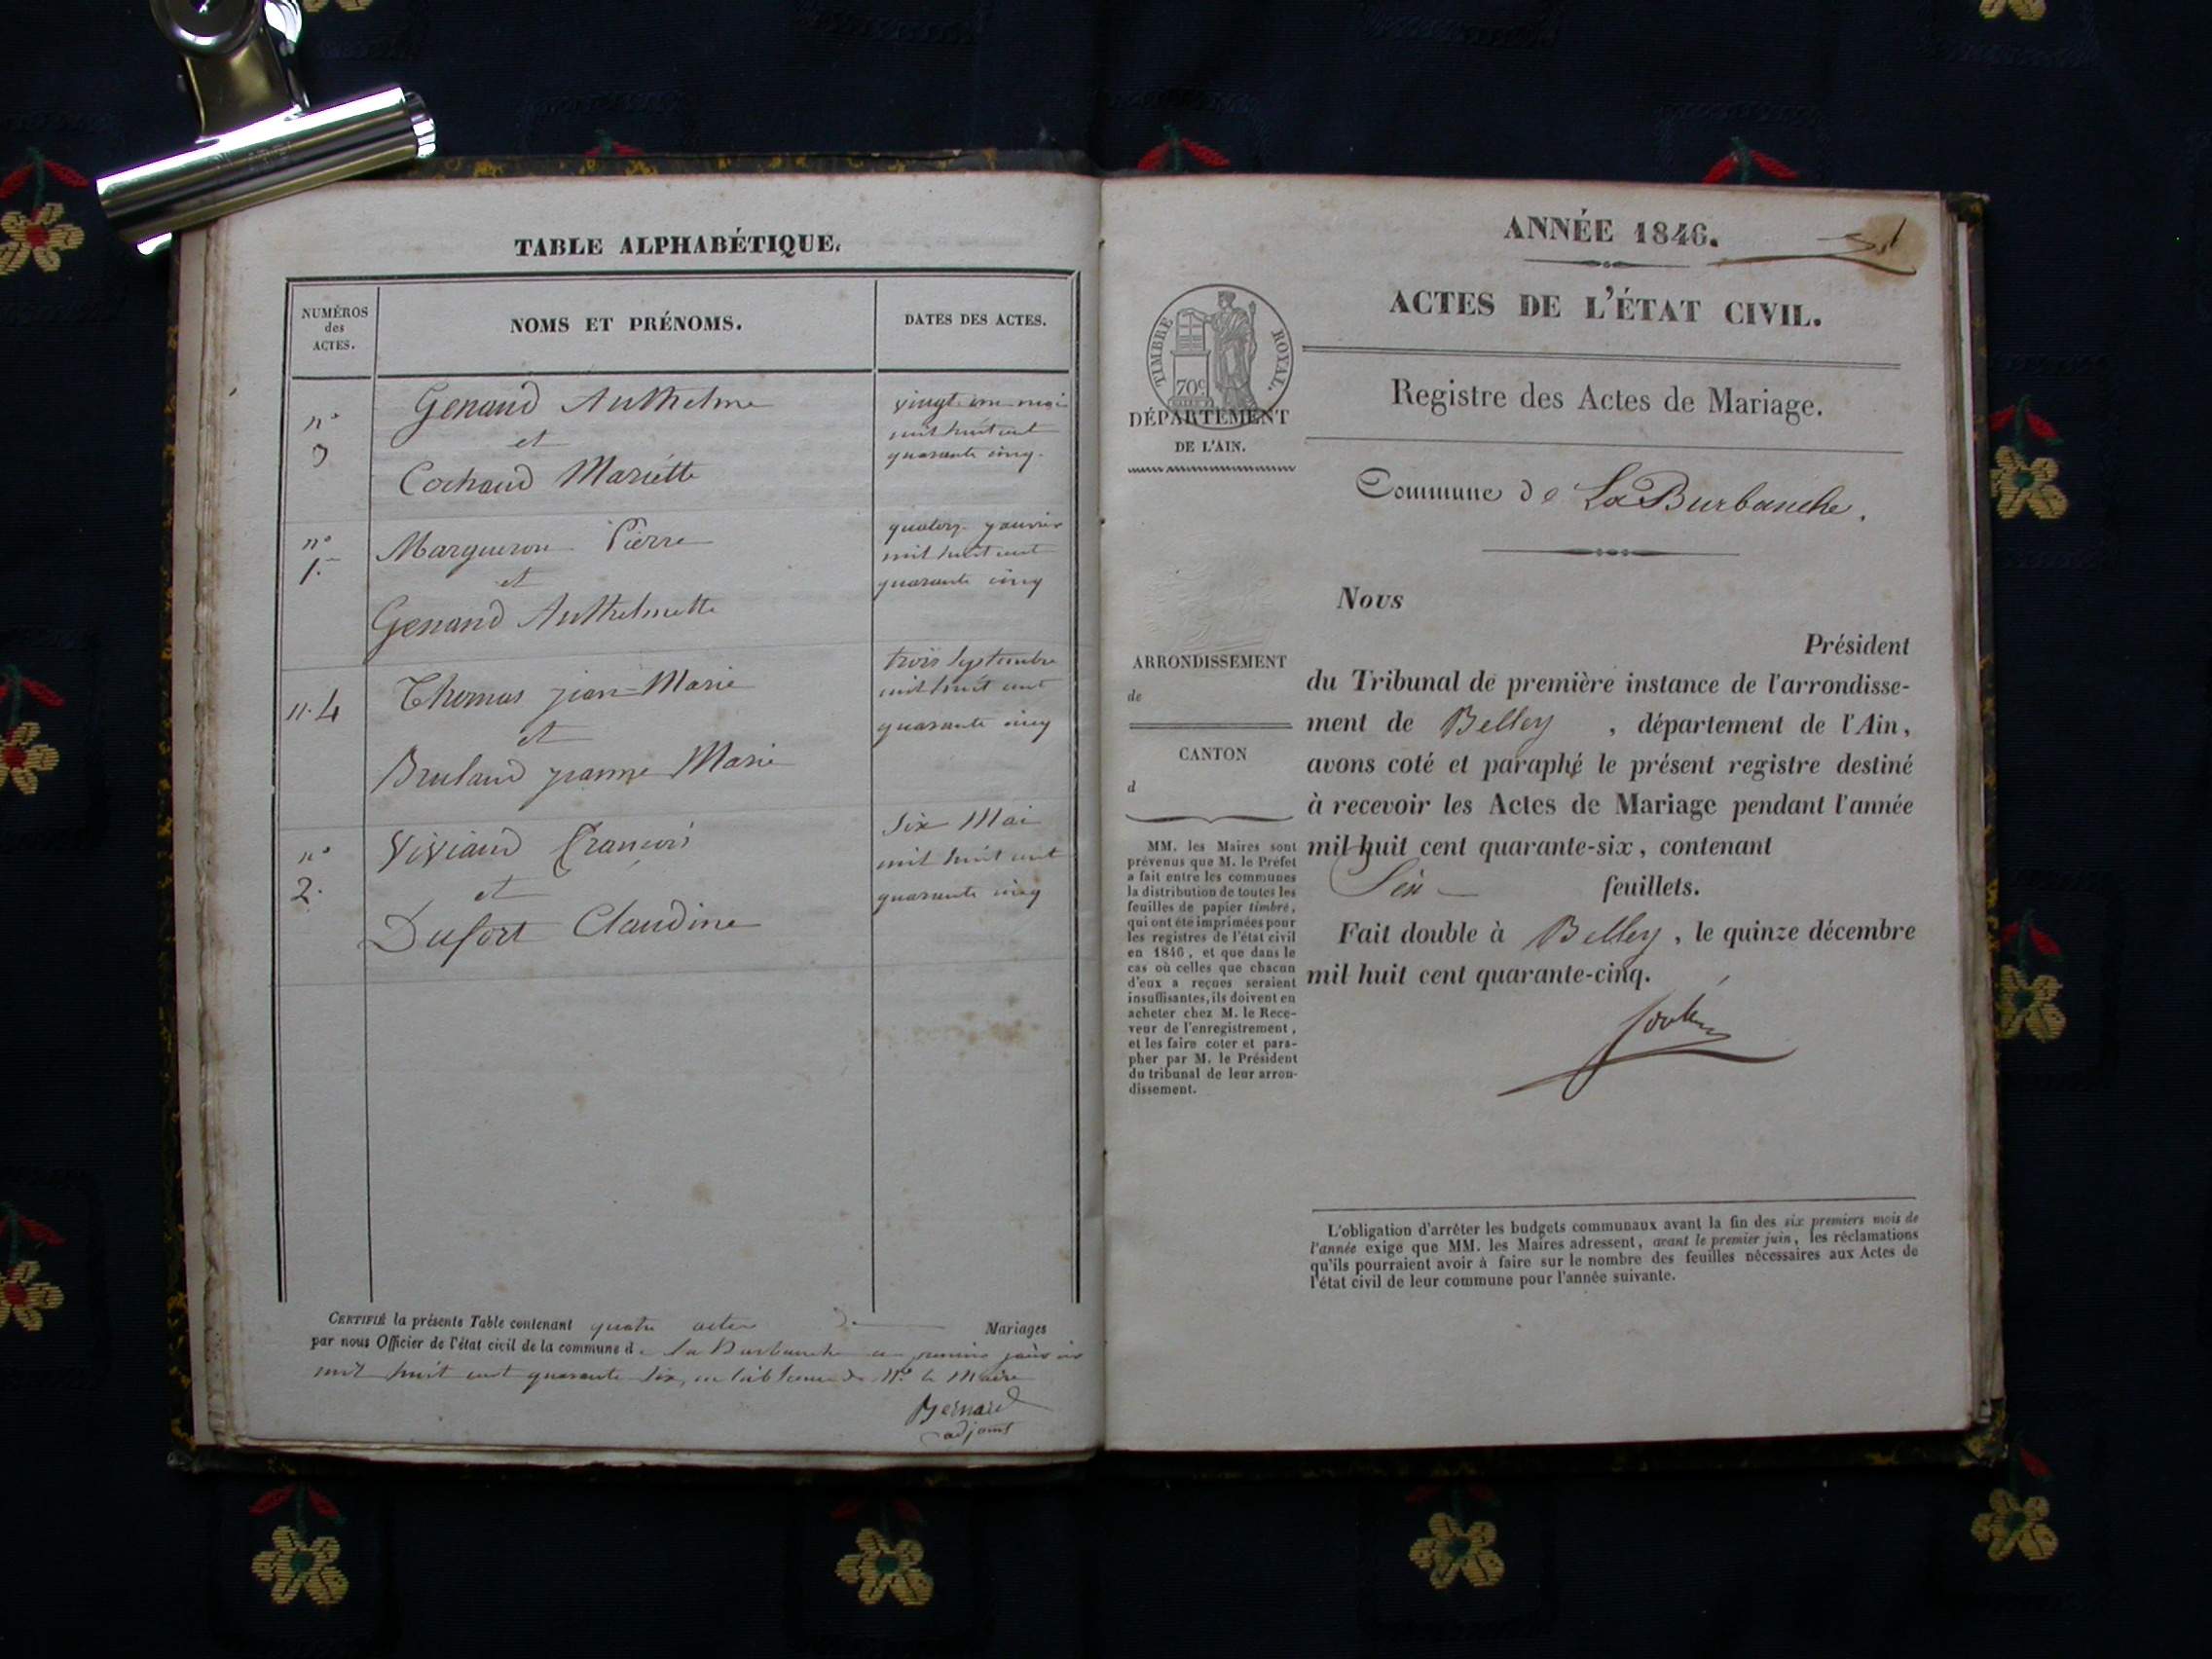 TABLE ALPHABÉTIQUE.
NUMÉROS
des
ACTES.
NOMS ET PRÉNOMS.
DATES DES ACTES.
n°
3
Genaud Anthelme
et
Cochaud Mariette
vingt un mai
mil huit cent
quarante cinq.
n°
1.
Margueron Pierre
et
Genand Anthelmette
quatorz janvier
mil huit cent
quarante cinq
n. 4
Thomas jean-Marie
et
Brulaud jeanne Marie
trois Septembre
mil huit cent
quarante cinq
n°
2.
Viviand François
et
Dufort Claudine
Six Mai
mil huit cent
quarante cinq
CERTIFIÉ la présente Table contenant quatre actes de Mariages
par nous Officier de l'état civil de la commune de la Burbanche ce premier janvier
mil huit cent quarante six, en l'absence de Mr. le Maire
Bernard
adjoint
ANNÉE 1846.
ACTES DE L'ÉTAT CIVIL.
TIMBRE ROYAL.
70c
DÉPARTEMENT
DE L'AIN.
Registre des Actes de Mariage.
Commune de La Burbanche.
ARRONDISSEMENT
de
CANTON
d
MM. les Maires sont
prévenus que M. le Préfet
a fait entre les communes
la distribution de toutes les
feuilles de papier timbré,
qui ont été imprimées pour
les registres de l'état civil
en 1846, et que dans le
cas où celles que chacun
d'eux a reçues seraient
insuffisantes, ils doivent en
acheter chez M. le Rece-
veur de l'enregistrement,
et les faire coter et para-
pher par M. le Président
du tribunal de leur arron-
dissement.
Nous
Président
du Tribunal de première instance de l'arrondisse-
ment de Belley , département de l'Ain,
avons coté et paraphé le présent registre destiné
à recevoir les Actes de Mariage pendant l'année
mil huit cent quarante-six, contenant
Six feuillets.
Fait double à Belley, le quinze décembre
mil huit cent quarante-cinq.
L'obligation d'arrêter les budgets communaux avant la fin des six premiers mois de
l'année exige que MM. les Maires adressent, avant le premier juin, les réclamations
qu'ils pourraient avoir à faire sur le nombre des feuilles nécessaires aux Actes de
l'état civil de leur commune pour l'année suivante.